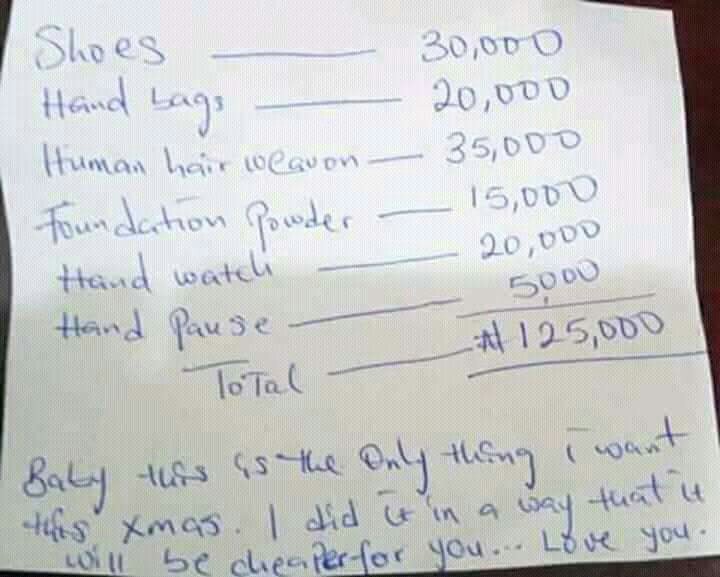 Shoes — 30,000
Hand bags — 20,000
Human hair weavon — 35,000
Foundation Powder — 15,000
Hand watch — 20,000
Hand Pause — 5,000
Total — ₦125,000
Baby this is the Only thing i want
this xmas. I did it in a way that it
will be cheaper for you... Love you.